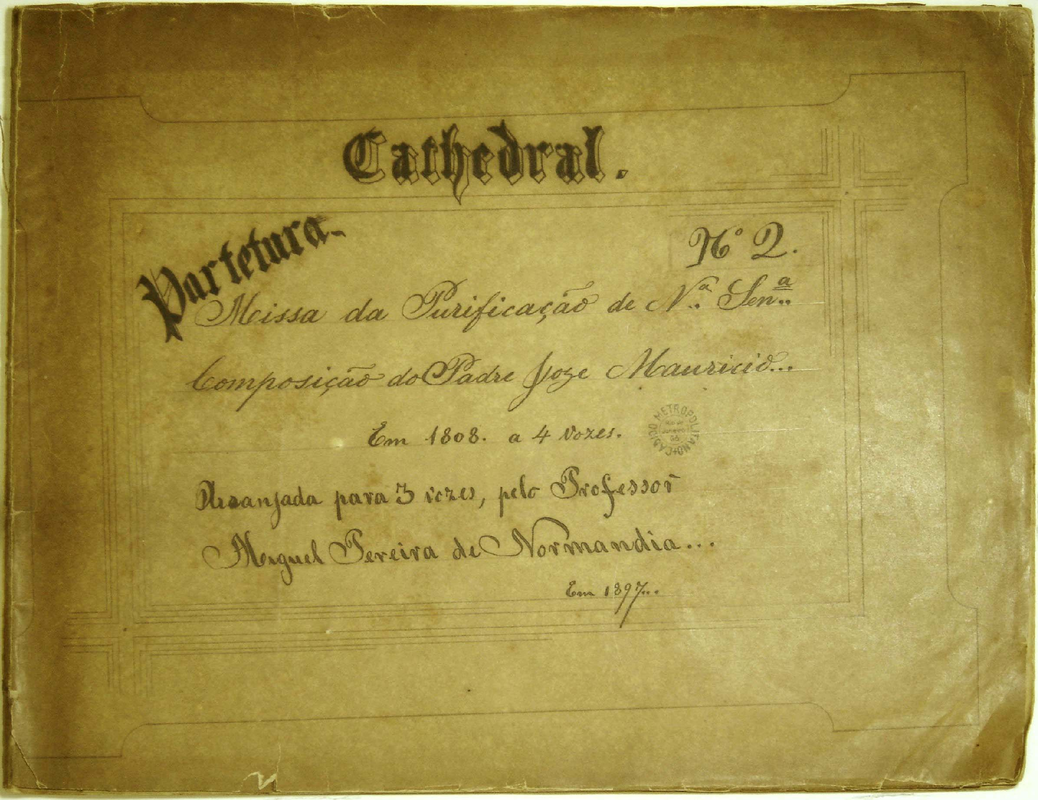 Cathedral.
Partetura.
Nº 2.
Missa da Purificação de N.ª Sen.ª
Composição do Padre Joze Mauricio...
Em 1808. a 4 vozes.
Arranjada para 3 vozes, pelo Professor
Miguel Pereira de Normandia...
Em 1897...
CABIDO METROPOLITANO